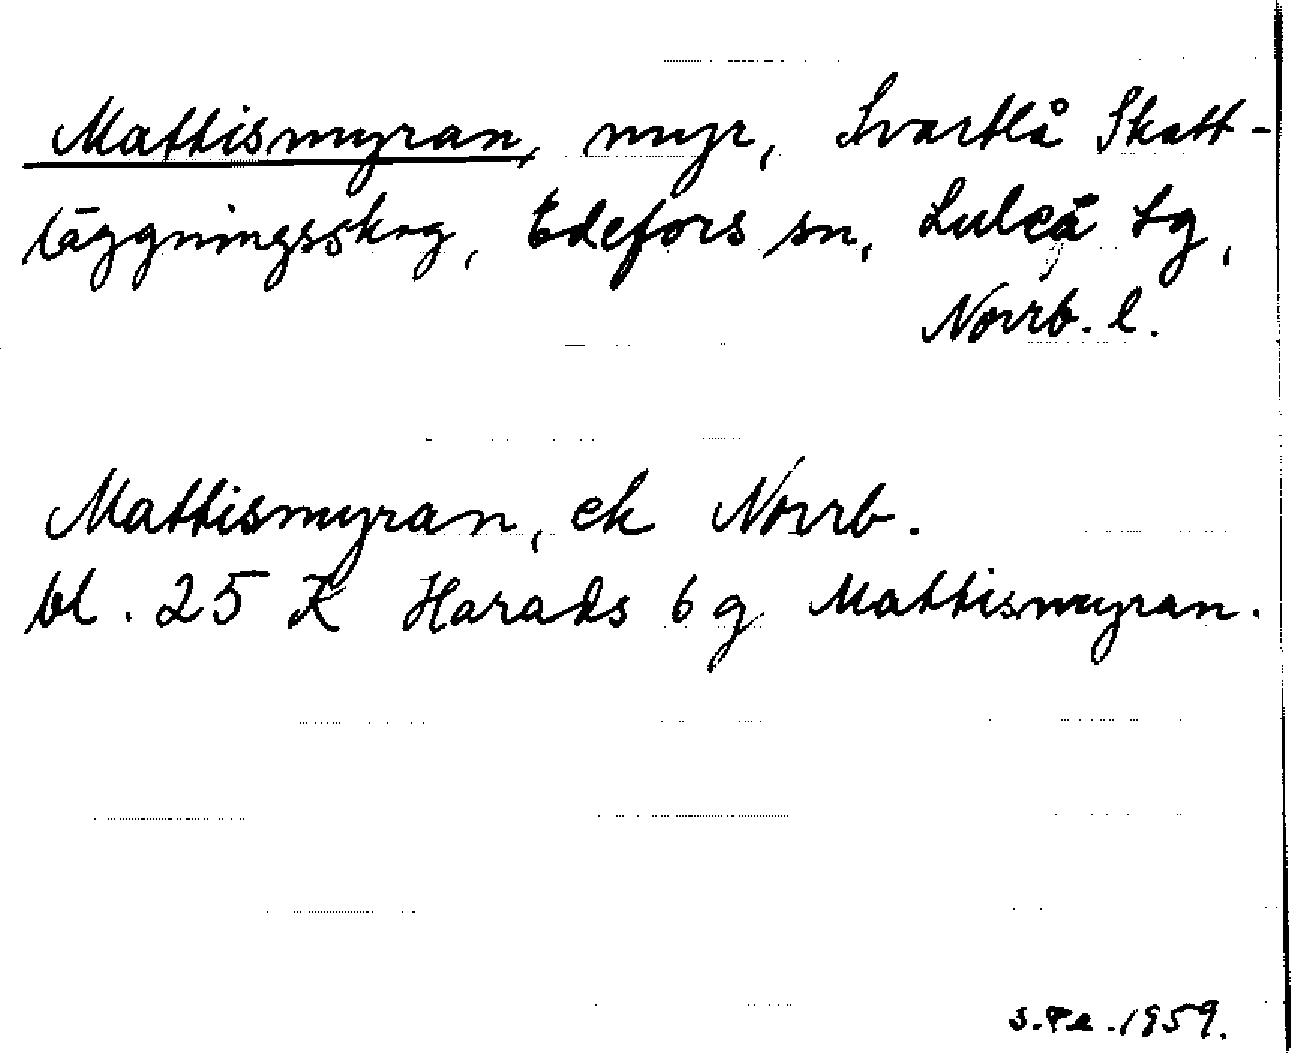 Mattismyran, myr, Svartlå Skatt-
läggningsskog, Edefors sn, Luleå tg,
Norrb. l.
Mattismyran, ek Norrb.
bl. 25 K Harads 6 g Mattismyran.
S.Pe. 1959.